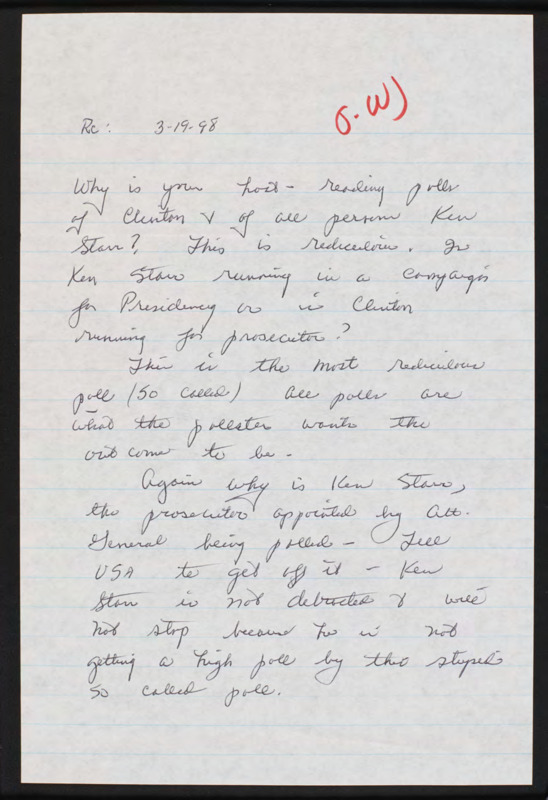 Re: 3-19-98
J.W)
Why is your host - reading polls
of Clinton & of all persons Ken
Starr? This is rediculous. Is
Ken Starr running in a campaign
for Presidency or is Clinton
running for prosecutor?
This is the most rediculous
poll (so called) all polls are
what the pollster wants the
out come to be -
Again why is Ken Starr,
the prosecutor appointed by Att.
General being polled - Tell
USA to get off it - Ken
Starr is not & will
not stop because he is not
getting a high poll by this stupid
so called poll.